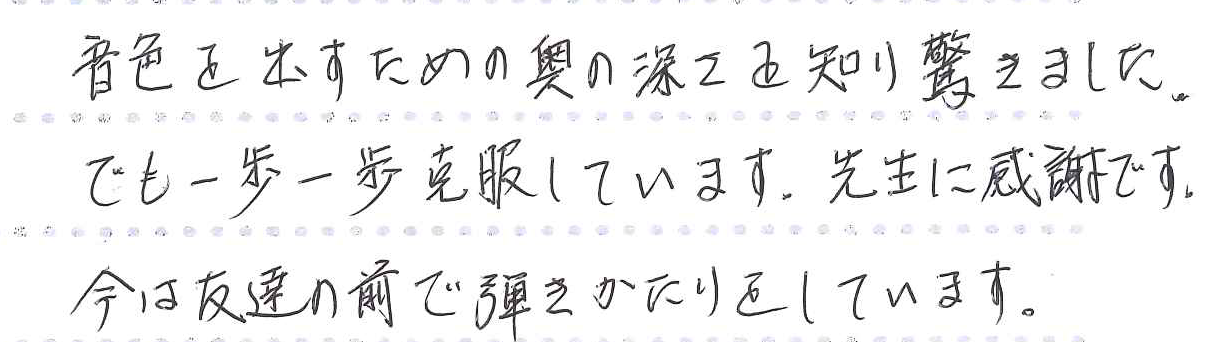 音色を出すための奥の深さを知り驚きました。
でも一歩一歩克服しています。先生に感謝です。
今は友達の前で弾きかたりをしています。